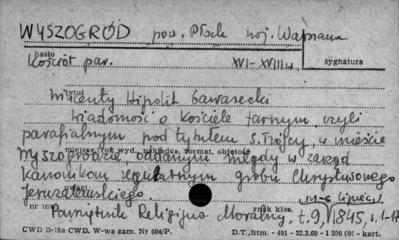 WYSZOGRÓD pow. Płock woj. Warszawa
hasło
Kościół par. XVI-XVIII w.
sygnatura
tytuł
Wincenty Hipolit Gawarecki
Wiadomość o kościele farnym, czyli
parafialnym pod tytułem S. Trójcy, w mieście
miejsce, rok wyd., nakładca, format, objętość
Wyszogrodzie oddanym niegdy w zarząd
Kanonikom regularnym grobu Chrystusowego
Jerozolimskiego.
nr inw. znak klas.
Pamiętnik Religijno Moralny, t.9, 1845, s. 1-17
CWD B-15a CWD, W-wa zam. Nr 604/P. D.T., Btm. - 491 - 23.3.60 - 1 200 000 - kart.